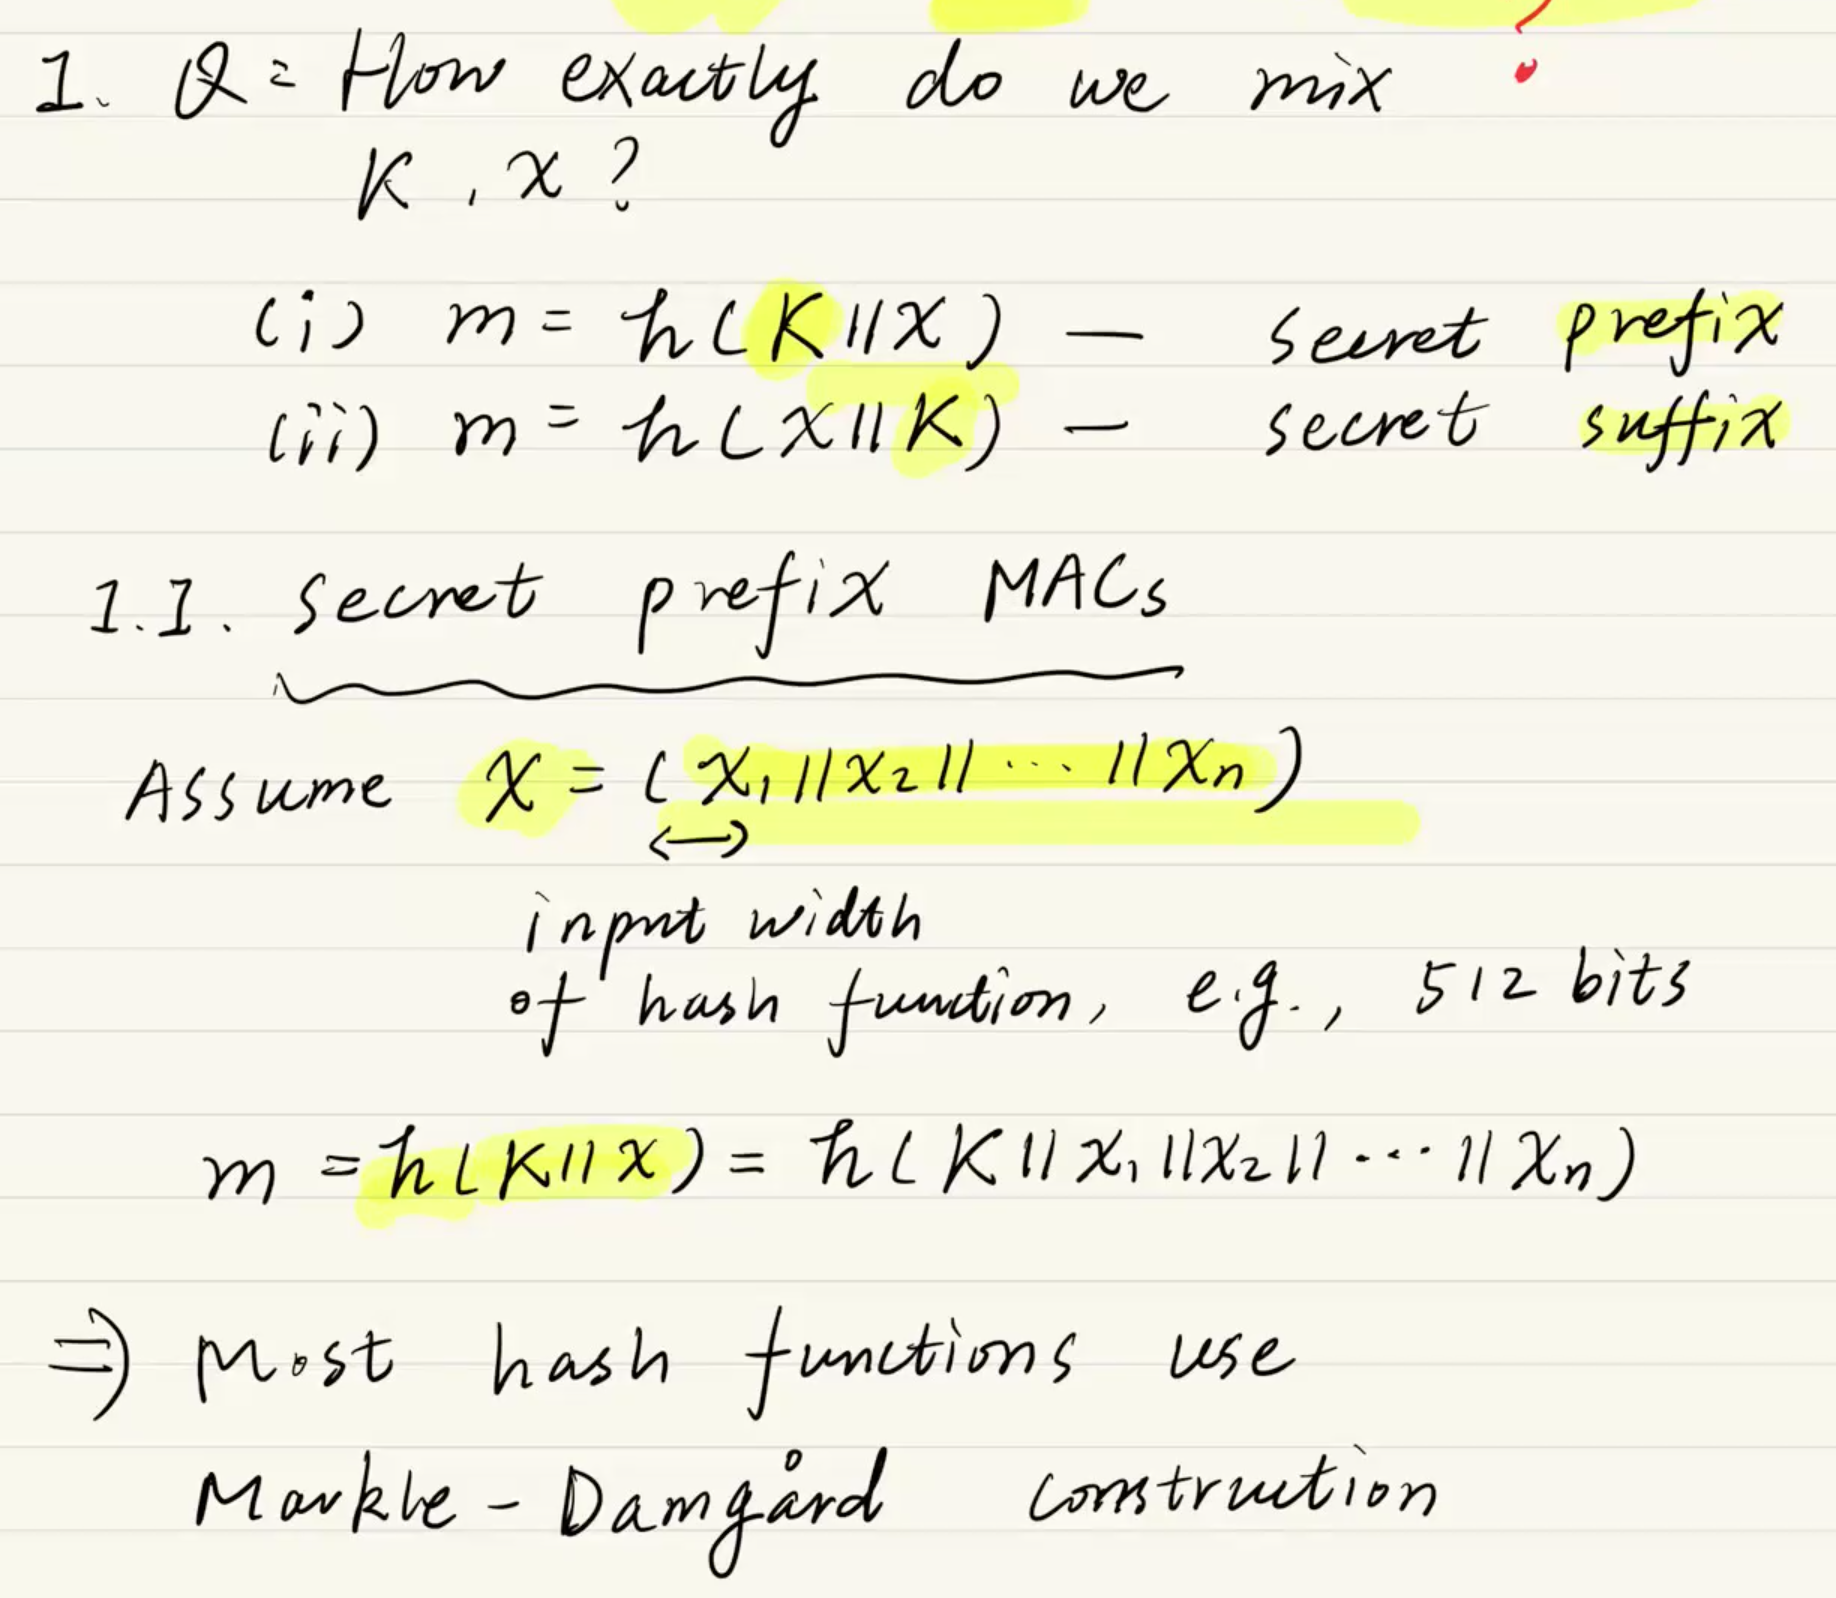 1. Q: How exactly do we mix ?
K, x ?
(i) m = h(K||x) — secret prefix
(ii) m = h(x||K) — secret suffix
1.1. Secret prefix MACs
Assume x = (x₁||x₂|| ··· ||xₙ)
input width
of hash function, e.g., 512 bits
m = h(K||x) = h(K||x₁||x₂|| ··· ||xₙ)
⇒ Most hash functions use
Markle - Damgård construction